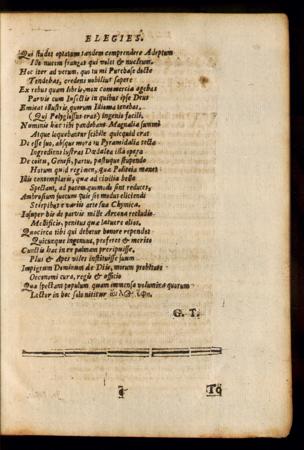 ELEGIES.
Qui studes optatum tandem comprendere Adeptum
Is nucem frangas qui voles & nucleum,
Hoc iter ad verum, quo tu mi Purchase docte
Tendebas, credens nobilius sapere
Ex rebus quam libris, mox commercia agebas
Parvis cum Insectis in quibus ipse Deus
Emicat illustris, quorum Idioma tenebas,
(Qui Polyglussus eras) ingenio facili,
Numinis hæc tibi pandebant Magnalia summi
Atque loquebantur scibile quicquid erat
De esse suo, absque mora tu Pyramidalia tecta
Ingrediens lustras Dædalea illa opera
De coitu, Genesi, partu, pastuque stupendo
Horum quid regimen, quæ Politeia manet
Illis contemplaris, quæ ad civilia bella
Spectant, ad pacem quomodo sint reduces,
Ambrosium succum quie sit modus eliciendi
Stirpibus e variis arte sua Chymica,
Insuper his de parvis mille Arcana recludis
Mellificiis, penitus quæ latuere alios,
Quocirca tibi qui debetur honore rependet
Quicunque ingenuus, profers & merito
Cunctis hac in re palmam preripuisse,
Plus & Apes viles instituisse suum
Impigrum Dominum de Diis, morum probitate
Oeconomi cura, regis & officio
Quæ spectant populum quam immensa volumina quorum
Lector in hoc solo nititur
G. T.
To